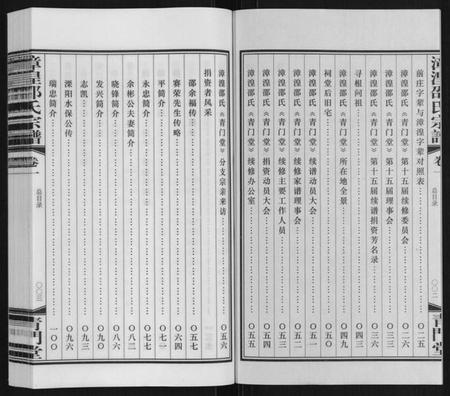 漳湟邵氏宗譜 卷一 总目录 〇〇二 青門堂
前庄字辈与前湟字辈对照表……〇二五
漳湟邵氏《青门堂》第十五届续修委员会……〇二六
漳湟邵氏《青门堂》第十五届续谱捐资芳名录……〇三六
寻根问祖……
漳湟邵氏《青门堂》所在地全景……
祠堂后旧宅……〇四九
漳湟邵氏《青门堂》续谱动员大会……
漳湟邵氏《青门堂》续修家谱理事会……〇五一
漳湟邵氏《青门堂》续修主要工作人员……〇五二
漳湟邵氏《青门堂》捐资动员大会……
漳湟邵氏《青门堂》续修办公室……〇五五
漳湟邵氏《青门堂》分支宗亲来访……〇五六
捐资者风采
邵余福传……〇五七
赛荣先生传略……〇六四
平简介……〇七二
永忠简介……〇七七
余彬公夫妻简介……〇八二
晓锋简介……〇八六
发兴简介……〇九〇
志凯……〇九三
溧阳水保公传……〇九六
瑞忠简介……一〇〇
漳湟邵氏宗譜 卷一 总目录 〇〇三 青門堂